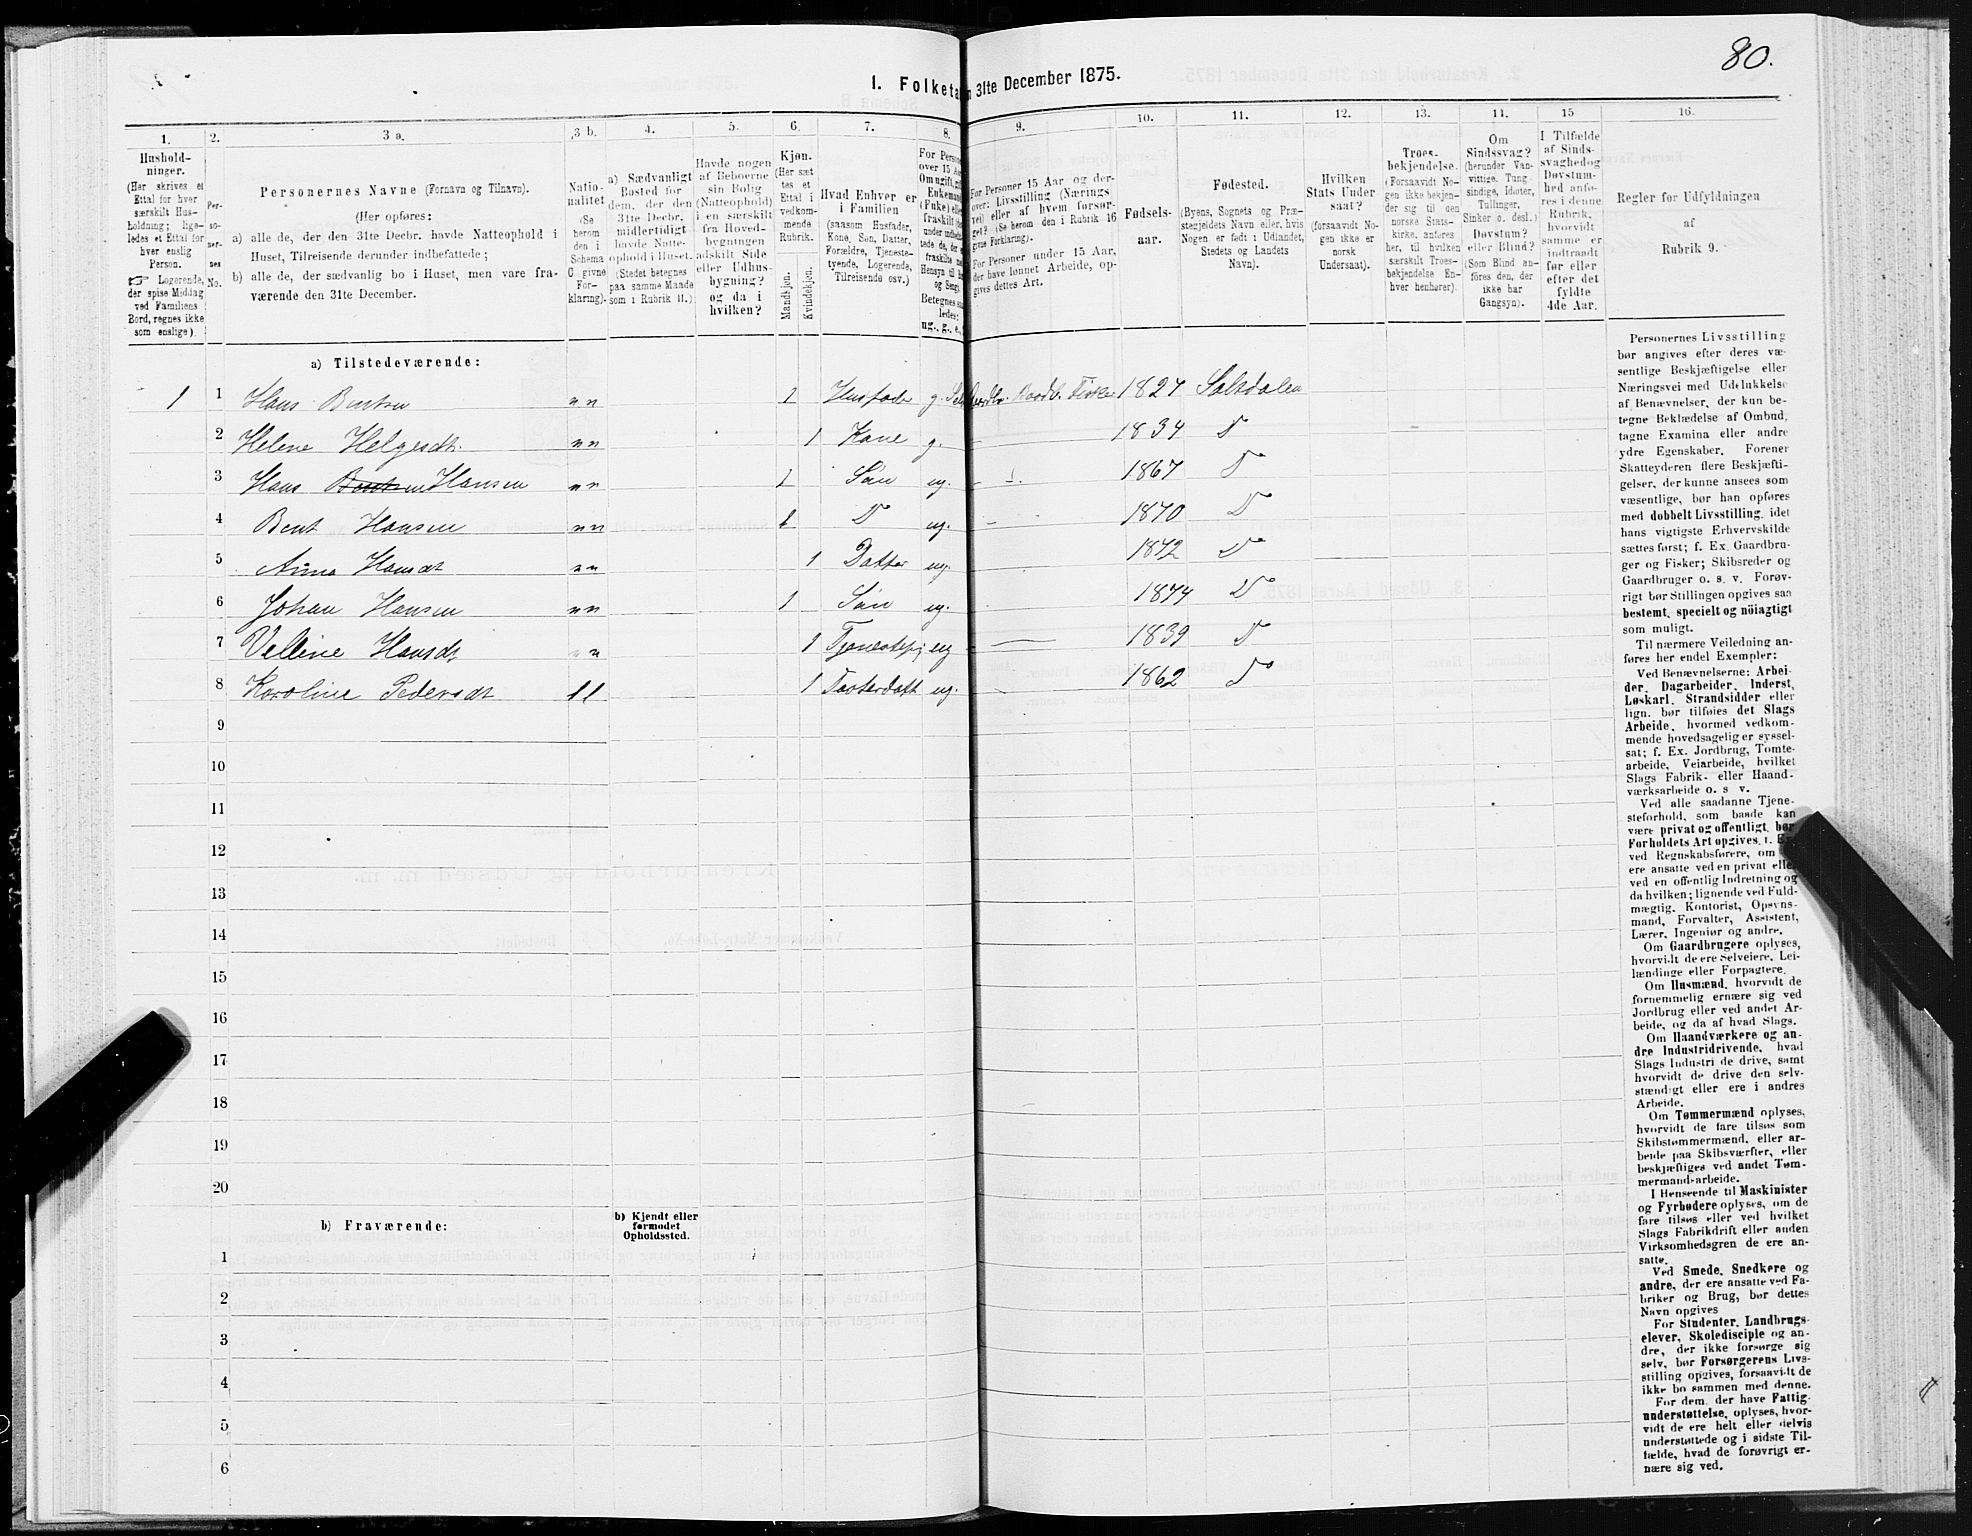 80.
I. Folketa
n 31te December 1875.
1.
2.
3 a.
3 b.
4.
5.
6.
7.
8.
9.
10.
11.
12.
13.
14.
15
16.
Hushold-
ninger.
(Her skrives et
Ettal for hver
særskilt Hus-
holdning; lige-
ledes et Ettal for
hver enslig
Person.
☞ Logerende,
der spise Middag
ved Familiens
Bord, regnes ikke
som enslige).
Per-
so-
ner-
nes
No.
Personernes Navne (Fornavn og Tilnavn).
(Her opføres:
a) alle de, der den 31te Decbr. havde Natteophold i
Huset, Tilreisende derunder indbefattede;
b) alle de, der sædvanlig bo i Huset, men vare fra-
værende den 31te December.
Natio-
nalitet
(Se
herom
den i
Schema
C givne
For-
klaring).
a) Sædvanligt
Bosted for
dem, der den
31te Decbr.
midlertidigt
havde Natte-
ophold i Huset.
(Stedet betegnes
paa samme Maade
som i Rubrik 11.)
Havde nogen
af Beboerne
sin Bolig
(Natteophold)
i en særskilt
fra Hoved-
bygningen
adskilt Side
eller Udhus-
bygning?
og da i
hvilken?
Kjøn.
(Her sæt
tes et
Ettal i
vedkom-
mende
Rubrik.
Mandkjøn.
Kvindekjøn.
Hvad Enhver er
i Familien
(saasom Husfader,
Kone, Søn, Datter,
Forældre, Tjeneste-
tyende, Logerende,
Tilreisende osv.)
For Perso
over 15 Aa
Om ugift, gi
Enkemand
(Enke) elle
fraskilt
Betegnes saa
ledes:
ug., g., e.,
For Personer 15 Aar og der-
over: Livsstilling (Nærings
vei) eller af hvem forsør-
get? (Se herom den i Rubrik 16
givne Forklaring).
For Personer under 15 Aar,
der have lønnet Arbeide, op-
gives dettes Art.
Fødsels-
aar.
Fødested.
(Byens, Sognets og Præ-
stegjeldets Navn eller, hvis
Nogen er født i Udlandet,
Stedets og Landets
Navn).
Hvilken
Stats Under
saat?
(forsaavidt No-
gen ikke er
norsk
Undersaat).
Troes-
bekjendelse.
(Forsaavidt No-
gen ikke bekjen-
der sig til den
norske Stats-
kirke, anføres
her, til hvilken
særskilt Troes-
bekjendelse En-
hver henhører).
Om
Sindssvag?
(herunder Van-
vittige, Tung-
sindige, Idioter,
Tullinger,
Sinker o. desl.)
Døvstum?
eller Blind?
(Som Blind an-
føres den, der
ikke har
Gangsyn).
I Tilfælde
af Sinds-
svaghedog
Døvstum-
hed anfø-
res i denne
Rubrik,
hvorvidt
samme er
indtraadt
før eller
efter det
fyldte
4de Aar.
Regler for Udfyldningen
af
Rubrik 9.
a) Tilstedeværende:
1 1 Hans Bentsen nn 1 Husfader g. Gaardb. Fisker 1827 Saltdalen
2 Helene Helgesdt. nn 1 Kone g. 1834 Do
3 Hans Bentsen Hansen nn 1 Søn ug. 1867 Do
4 Bent Hansen nn 1 Do ug. 1870 Do
5 Anna Hansdt nn 1 Datter ug. 1872 Do
6 Johan Hansen nn 1 Søn ug. 1874 Do
7 Velline Hansdt nn 1 Tjenestepi ug 1839 Do
8 Karoline Pedersdt ll 1 ug. 1862 Do
9
10
11
12
13
14
15
16
17
18
19
20
b) Fraværende:
b) Kjendt eller
formodet
Opholdssted.
1
2
3
4
5
6
Personernes Livsstilling
bør angives efter deres væ-
sentlige Beskjæftigelse eller
Næringsvei med Udelukkelse
af Benævnelser, der kun be-
tegne Beklædelse af Ombud,
tagne Examina eller andre
ydre Egenskaber. Forener
Skatteyderen flere Beskjæfti-
gelser, der kunne ansees som
væsentlige, bør han opføres
med dobbelt Livsstilling, idet
hans vigtigste Erhvervskilde
sættes først; f. Ex. Gaardbru-
ger og Fisker; Skibsreder og
Gaardbruger o. s. v. Forøv-
rigt bør Stillingen opgives saa
bestemt, specielt og nöiagtigt
som muligt.
Til nærmere Veiledning an-
føres her endel Exempler:
Ved Benævnelserne: Arbei-
der, Dagarbeider, Inderst,
Løskarl, Strandsidder eller
lign. bør tilføies det Slags
Arbeide, hvormed vedkom-
mende hovedsagelig er syssel-
sat; f. Ex. Jordbrug, Tomte-
arbeide, Veiarbeide, hvilket
Slags Fabrik- eller Haand-
værksarbeide o. s v.
Ved alle saadanne Tjene-
steforhold, som baade kan
være privat og offentligt, bør
Forholdets Art opgives, f. Ex
ved Regnskabsførere, om
ere ansatte ved en privat elle
ved en offentlig Indretning og
da hvilken; lignende ved Fuld-
mægtig, Kontorist, Opsyns-
mand, Forvalter, Assistent,
Lærer, Ingeniør og andre.
Om Gaardbrugere oplyses,
hvorvidt de ere Selveiere, Lei-
lændinge eller Forpagtere.
Om Husmænd, hvorvidt de
fornemmelig ernære sig ved
Jordbrug eller ved andet Ar-
beide, og da af hvad Slags.
Om Haandværkere og an-
dre Industridrivende, hvad
Slags Industri de drive, samt
hvorvidt de drive den selv-
stændigt eller ere i andres
Arbeide.
Om Tømmermænd oplyses,
hvorvidt de fare tilsøs som
Skibstømmermænd, eller ar-
beide paa Skibsværfter, eller
beskjæftiges ved andet Tøm-
mermandsarbeide.
I Henseende til Maskinister
og Fyrbødere oplyses, om de
fare tilsøs eller ved hvilket
Slags Fabrikdrift eller anden
Virksomhedsgren de ere an-
satte.
Ved Smede, Snedkere og
andre, der ere ansatte ved Fa-
briker og Brug, bør dettes
Navn opgives
For Studenter, Landbrugs-
elever, Skoledisciple og an-
dre, der ikke forsørge sig
selv, bør Forsørgerens Livs-
stilling opgives, forsaavidt de
ikke bo sammen med denne.
For dem, der have Fattig-
understøttelse, oplyses, hvor-
vidt de ere helt eller delvis
understøttede og i sidste Til-
fælde, hvad de forøvrigt er-
nære sig ved.